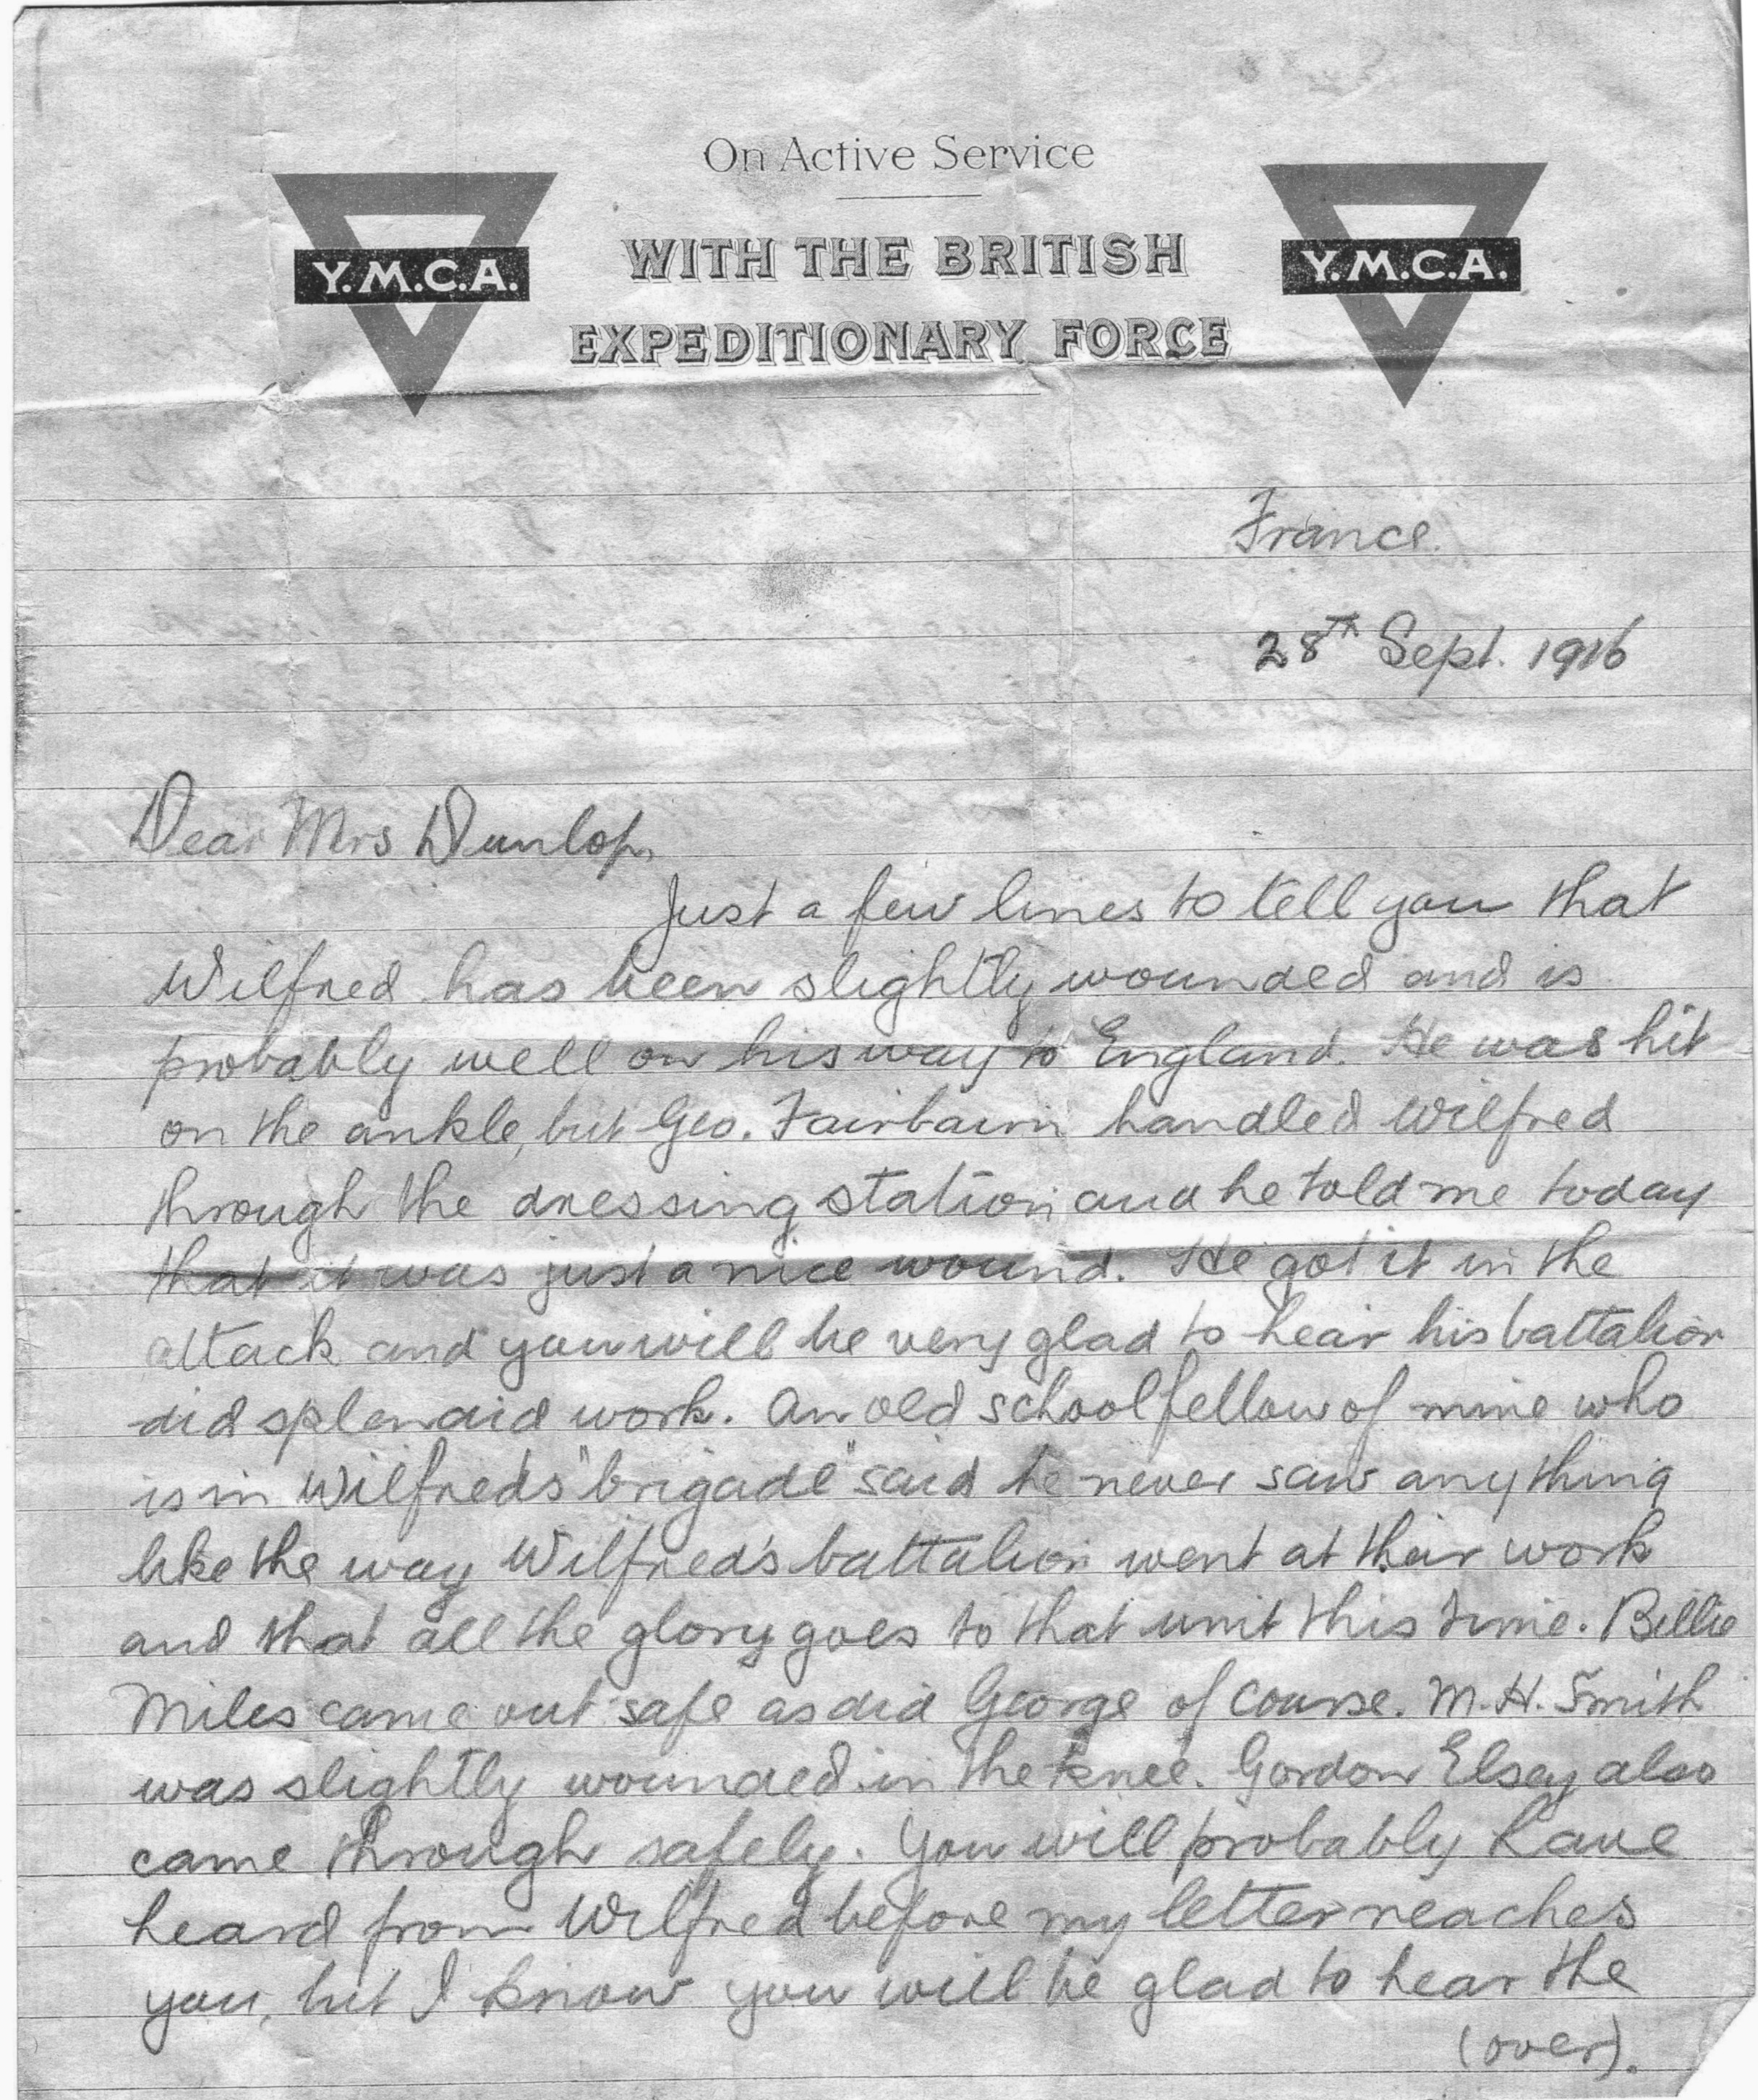 On Active Service
Y.M.C.A. WITH THE BRITISH Y.M.C.A.
EXPEDITIONARY FORCE
France.
28th Sept. 1916
Dear Mrs Dunlop,
Just a few lines to tell you that
Wilfred has been slightly wounded and is
probably well on his way to England. He was hit
on the ankle, but Geo. Fairbairn handled Wilfred
through the dressing station and he told me today
that it was just a nice wound. He got it in the
attack and you will be very glad to hear his battalion
did splendid work. An old schoolfellow of mine who
is in Wilfred's "brigade" said he never saw anything
like the way Wilfred's battalion went at their work
and that all the glory goes to that unit this time. Billie
Miles came out safe as did George of course. M. H. Smith
was slightly wounded in the knee. Gordon Elsey also
came through safely. You will probably have
heard from Wilfred before my letter reaches
you, but I know you will be glad to hear the
(over).